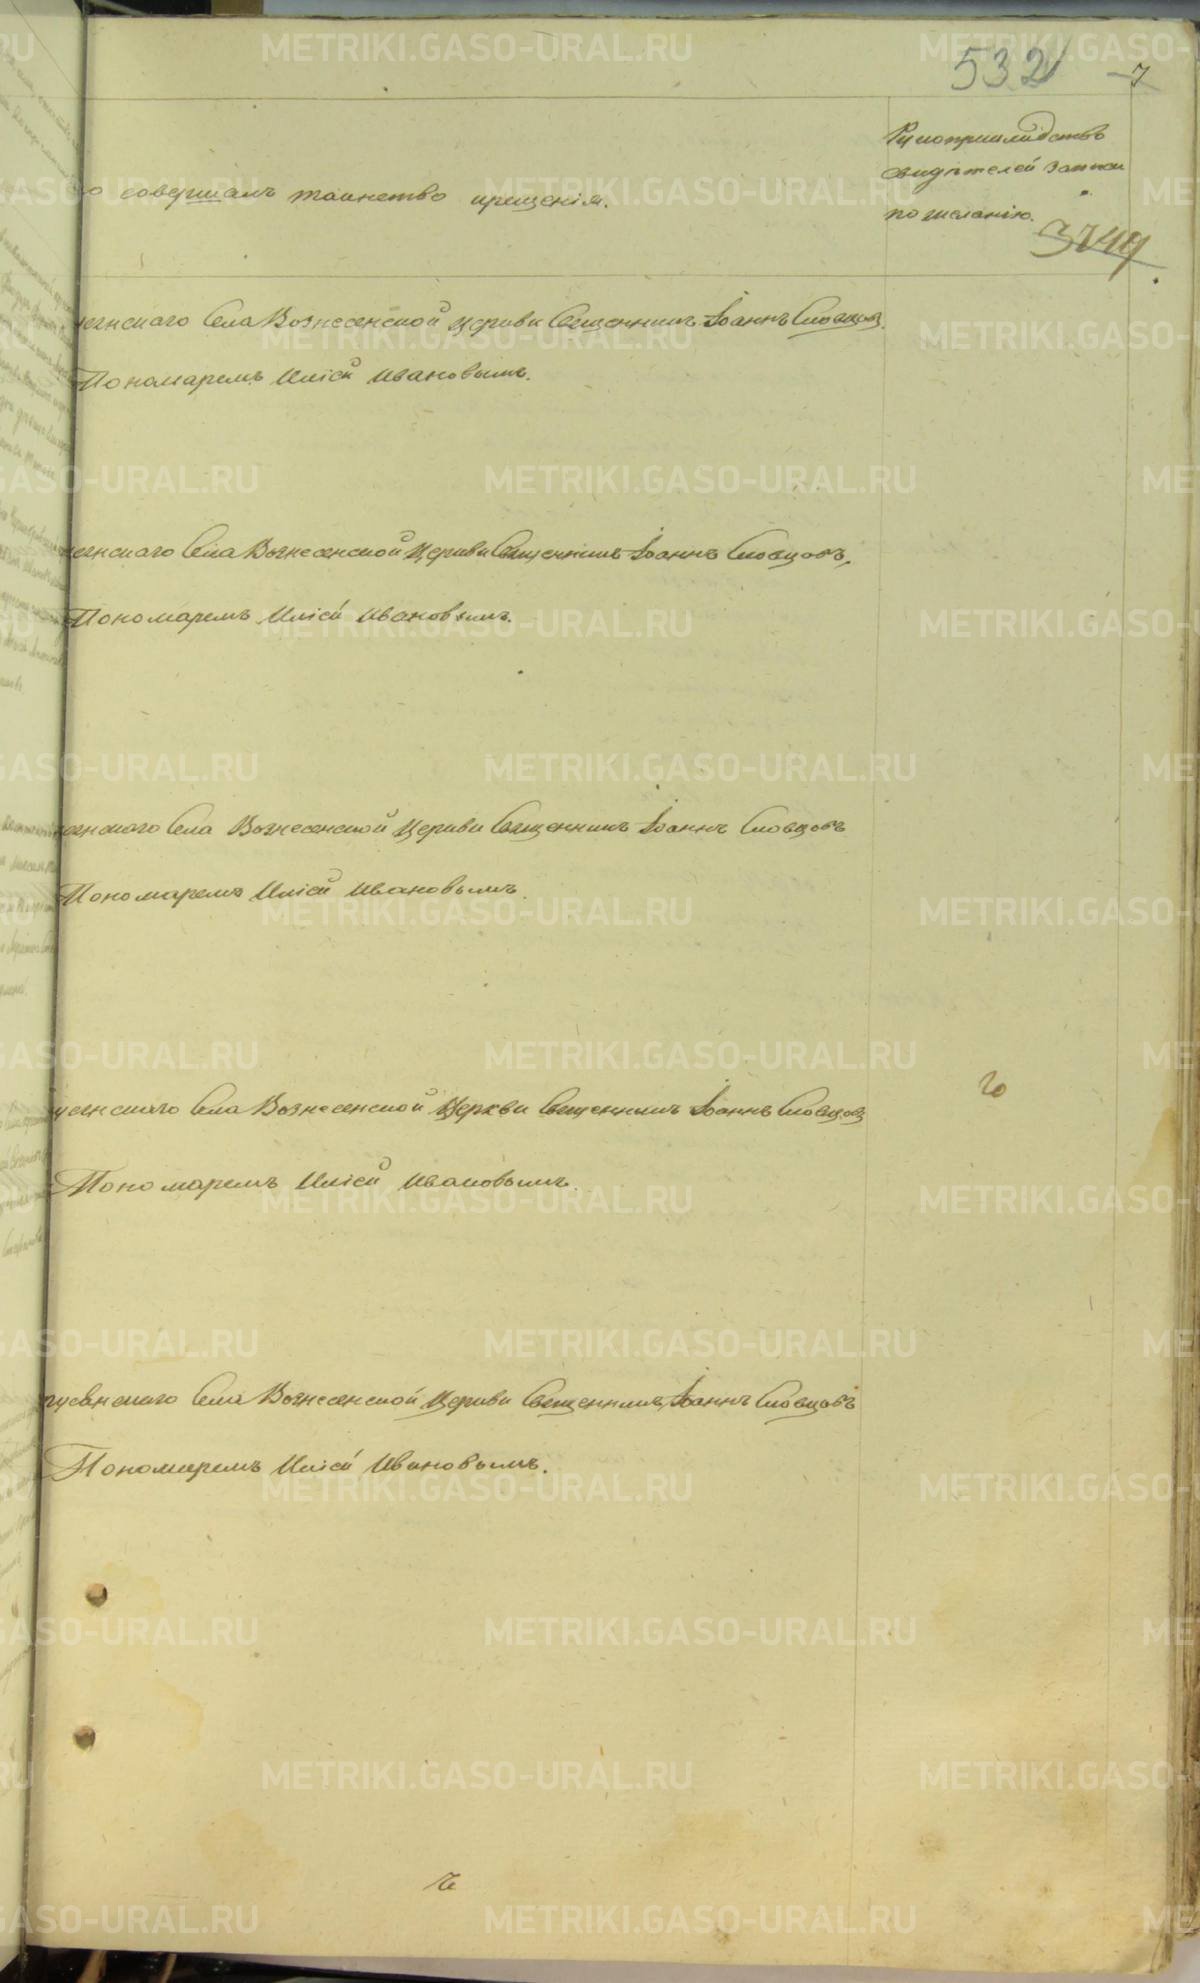 532 7
Рукоприкладство
свидѣтелей записи
о совершалъ таинство крещенія.
по желанію.
3749
сенскаго Села Вознесенской Церкви Священникъ Іоаннъ Словцовъ
Пономаремъ Иліей Ивановымъ.
сенскаго Села Вознесенской Церкви Священникъ Іоаннъ Словцовъ,
Пономаремъ Иліей Ивановымъ.
сенскаго Села Вознесенской Церкви Священникъ Іоаннъ Словцовъ
Пономаремъ Иліей Ивановымъ.
усенскаго Села Вознесенской Церкви Священникъ Іоаннъ Словцовъ
Пономаремъ Иліей Ивановымъ.
Села Вознесенской Церкви Священникъ Іоаннъ Словцовъ
Пономаремъ Иліей Ивановымъ.
METRIKI.GASO-URAL.RU